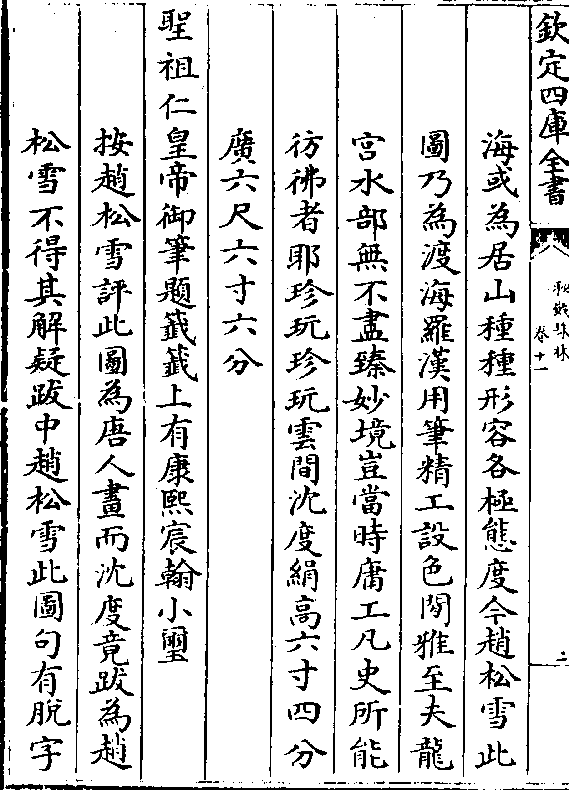 欽定四庫全書
秘殿珠林
卷十一
二
海或為居山種種形容各極態度今趙松雪此
圖乃為渡海羅漢用筆精工設色閒雅至夫龍
宮水部無不盡臻妙境豈當時庸工凡史所能
彷彿者耶珍玩珍玩雲間沈度絹高六寸四分
廣六尺六寸六分
聖祖仁皇帝御筆題籤籤上有康熙宸翰小璽
按趙松雪評此圖為唐人畫而沈度竟跋為趙
松雪不得其解疑跋中趙松雪此圖句有脫字